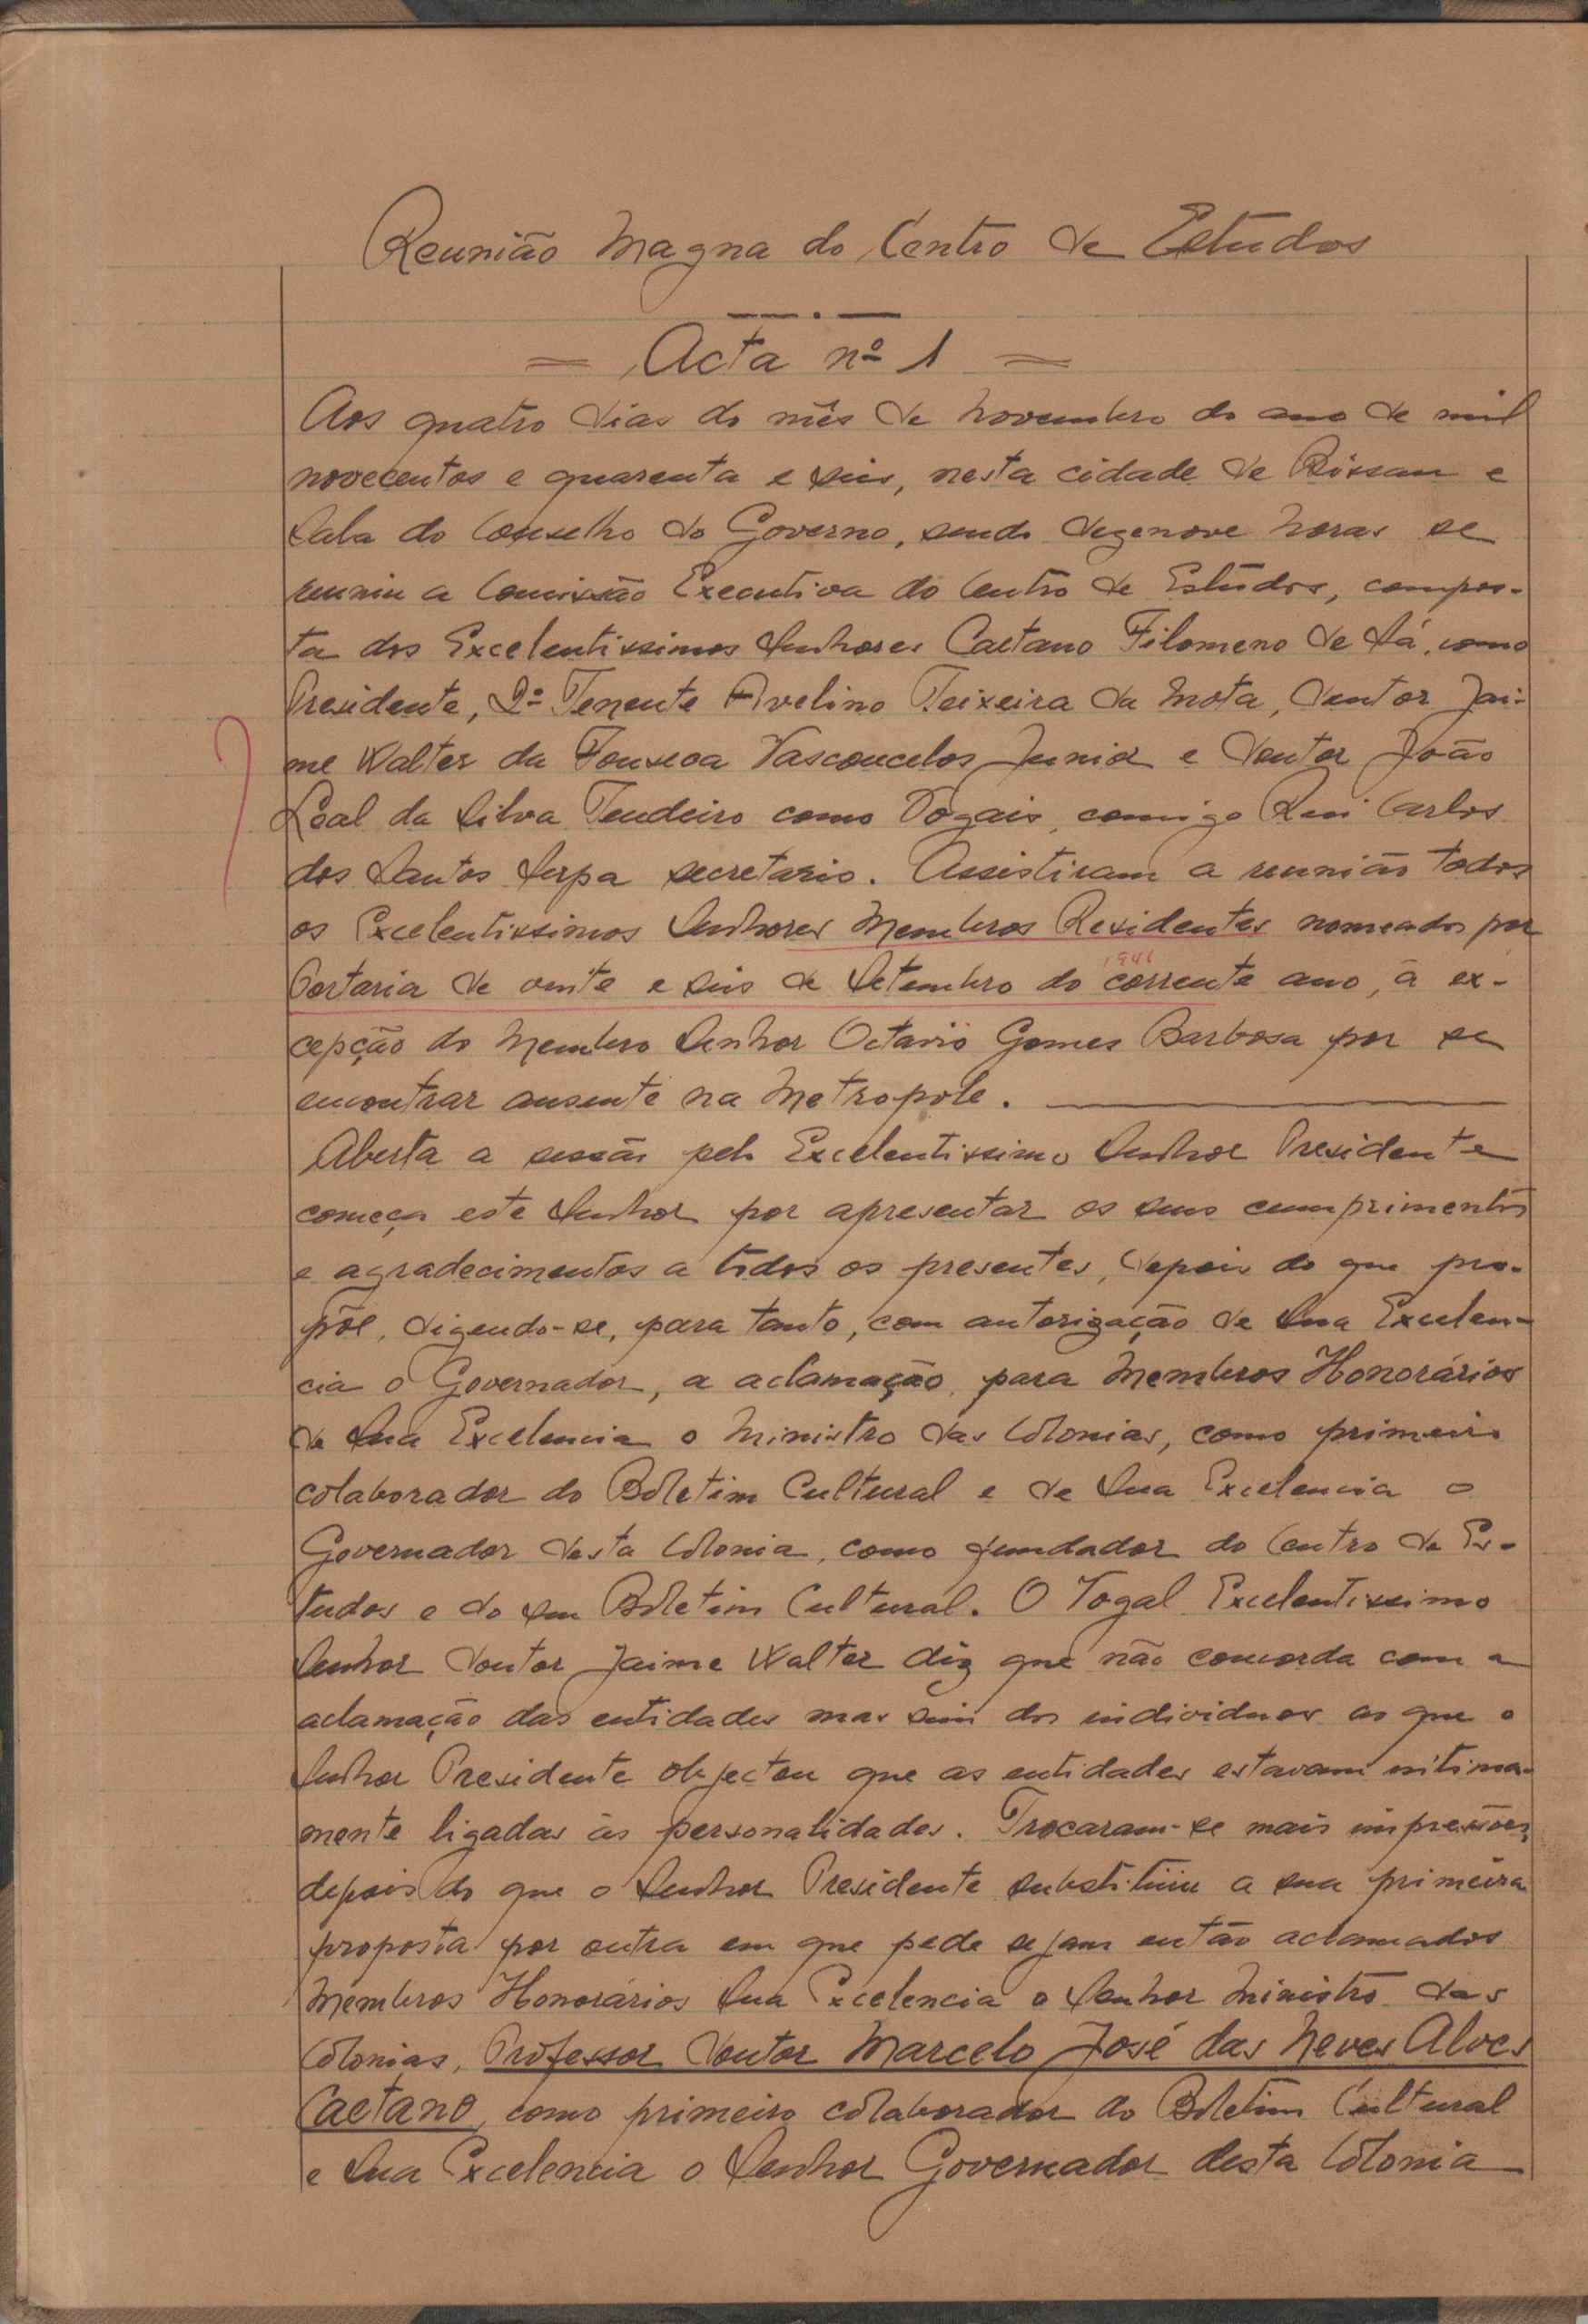 Reunião Magna do Centro de Estudos
Acta nº 1
Aos quatro dias do mês de Novembro do ano de mil
novecentos e quarenta e seis, nesta cidade de Bissau e
Sala do Conselho do Governo, sendo dezenove horas se
reuniu a Comissão Executiva do Centro de Estudos, compos-
ta dos Excelentissimos Senhores Caetano Filomeno de Sá, como
Presidente, 2º Tenente Avelino Teixeira da Mota, Doutor Jai-
me Walter da Fonseca Vasconcelos Junior e Doutor João
Leal da Silva Tendeiro como Vogais, comigo Rui Carlos
dos Santos Serpa secretario. Assistiram a reunião todos
os Excelentissimos Senhores Membros Residentes nomeados por
1946
Portaria de vinte e seis de Setembro do corrente ano, à ex-
cepção do Membro Senhor Octavio Gomes Barbosa por se
encontrar ausente na Metropole.
Aberta a sessão pelo Excelentissimo Senhor Presidente
começa este Senhor por apresentar os seus cumprimentos
e agradecimentos a todos os presentes, depois do que pro-
põe, dizendo-se, para tanto, com autorização de Sua Excelen-
cia o Governador, a aclamação, para Membros Honorários
de Sua Excelencia o Ministro das Colonias, como primeiro
colaborador do Boletim Cultural e de Sua Excelencia o
Governador desta Colonia, como fundador do Centro de Es-
tudos e do seu Boletim Cultural. O Vogal Excelentissimo
Senhor Doutor Jaime Walter diz que não concorda com a
aclamação das entidades mas sim dos individuos ao que o
Senhor Presidente objectou que as entidades estavam intima-
mente ligadas às personalidades. Trocaram-se mais impressões,
depois do que o Senhor Presidente substituiu a sua primeira
proposta por outra em que pede sejam então aclamados
Membros Honorários Sua Excelencia o Senhor Ministro das
Colonias, Professor Doutor Marcelo José das Neves Alves
Caetano, como primeiro colaborador do Boletim Cultural
e Sua Excelencia o Senhor Governador desta Colonia